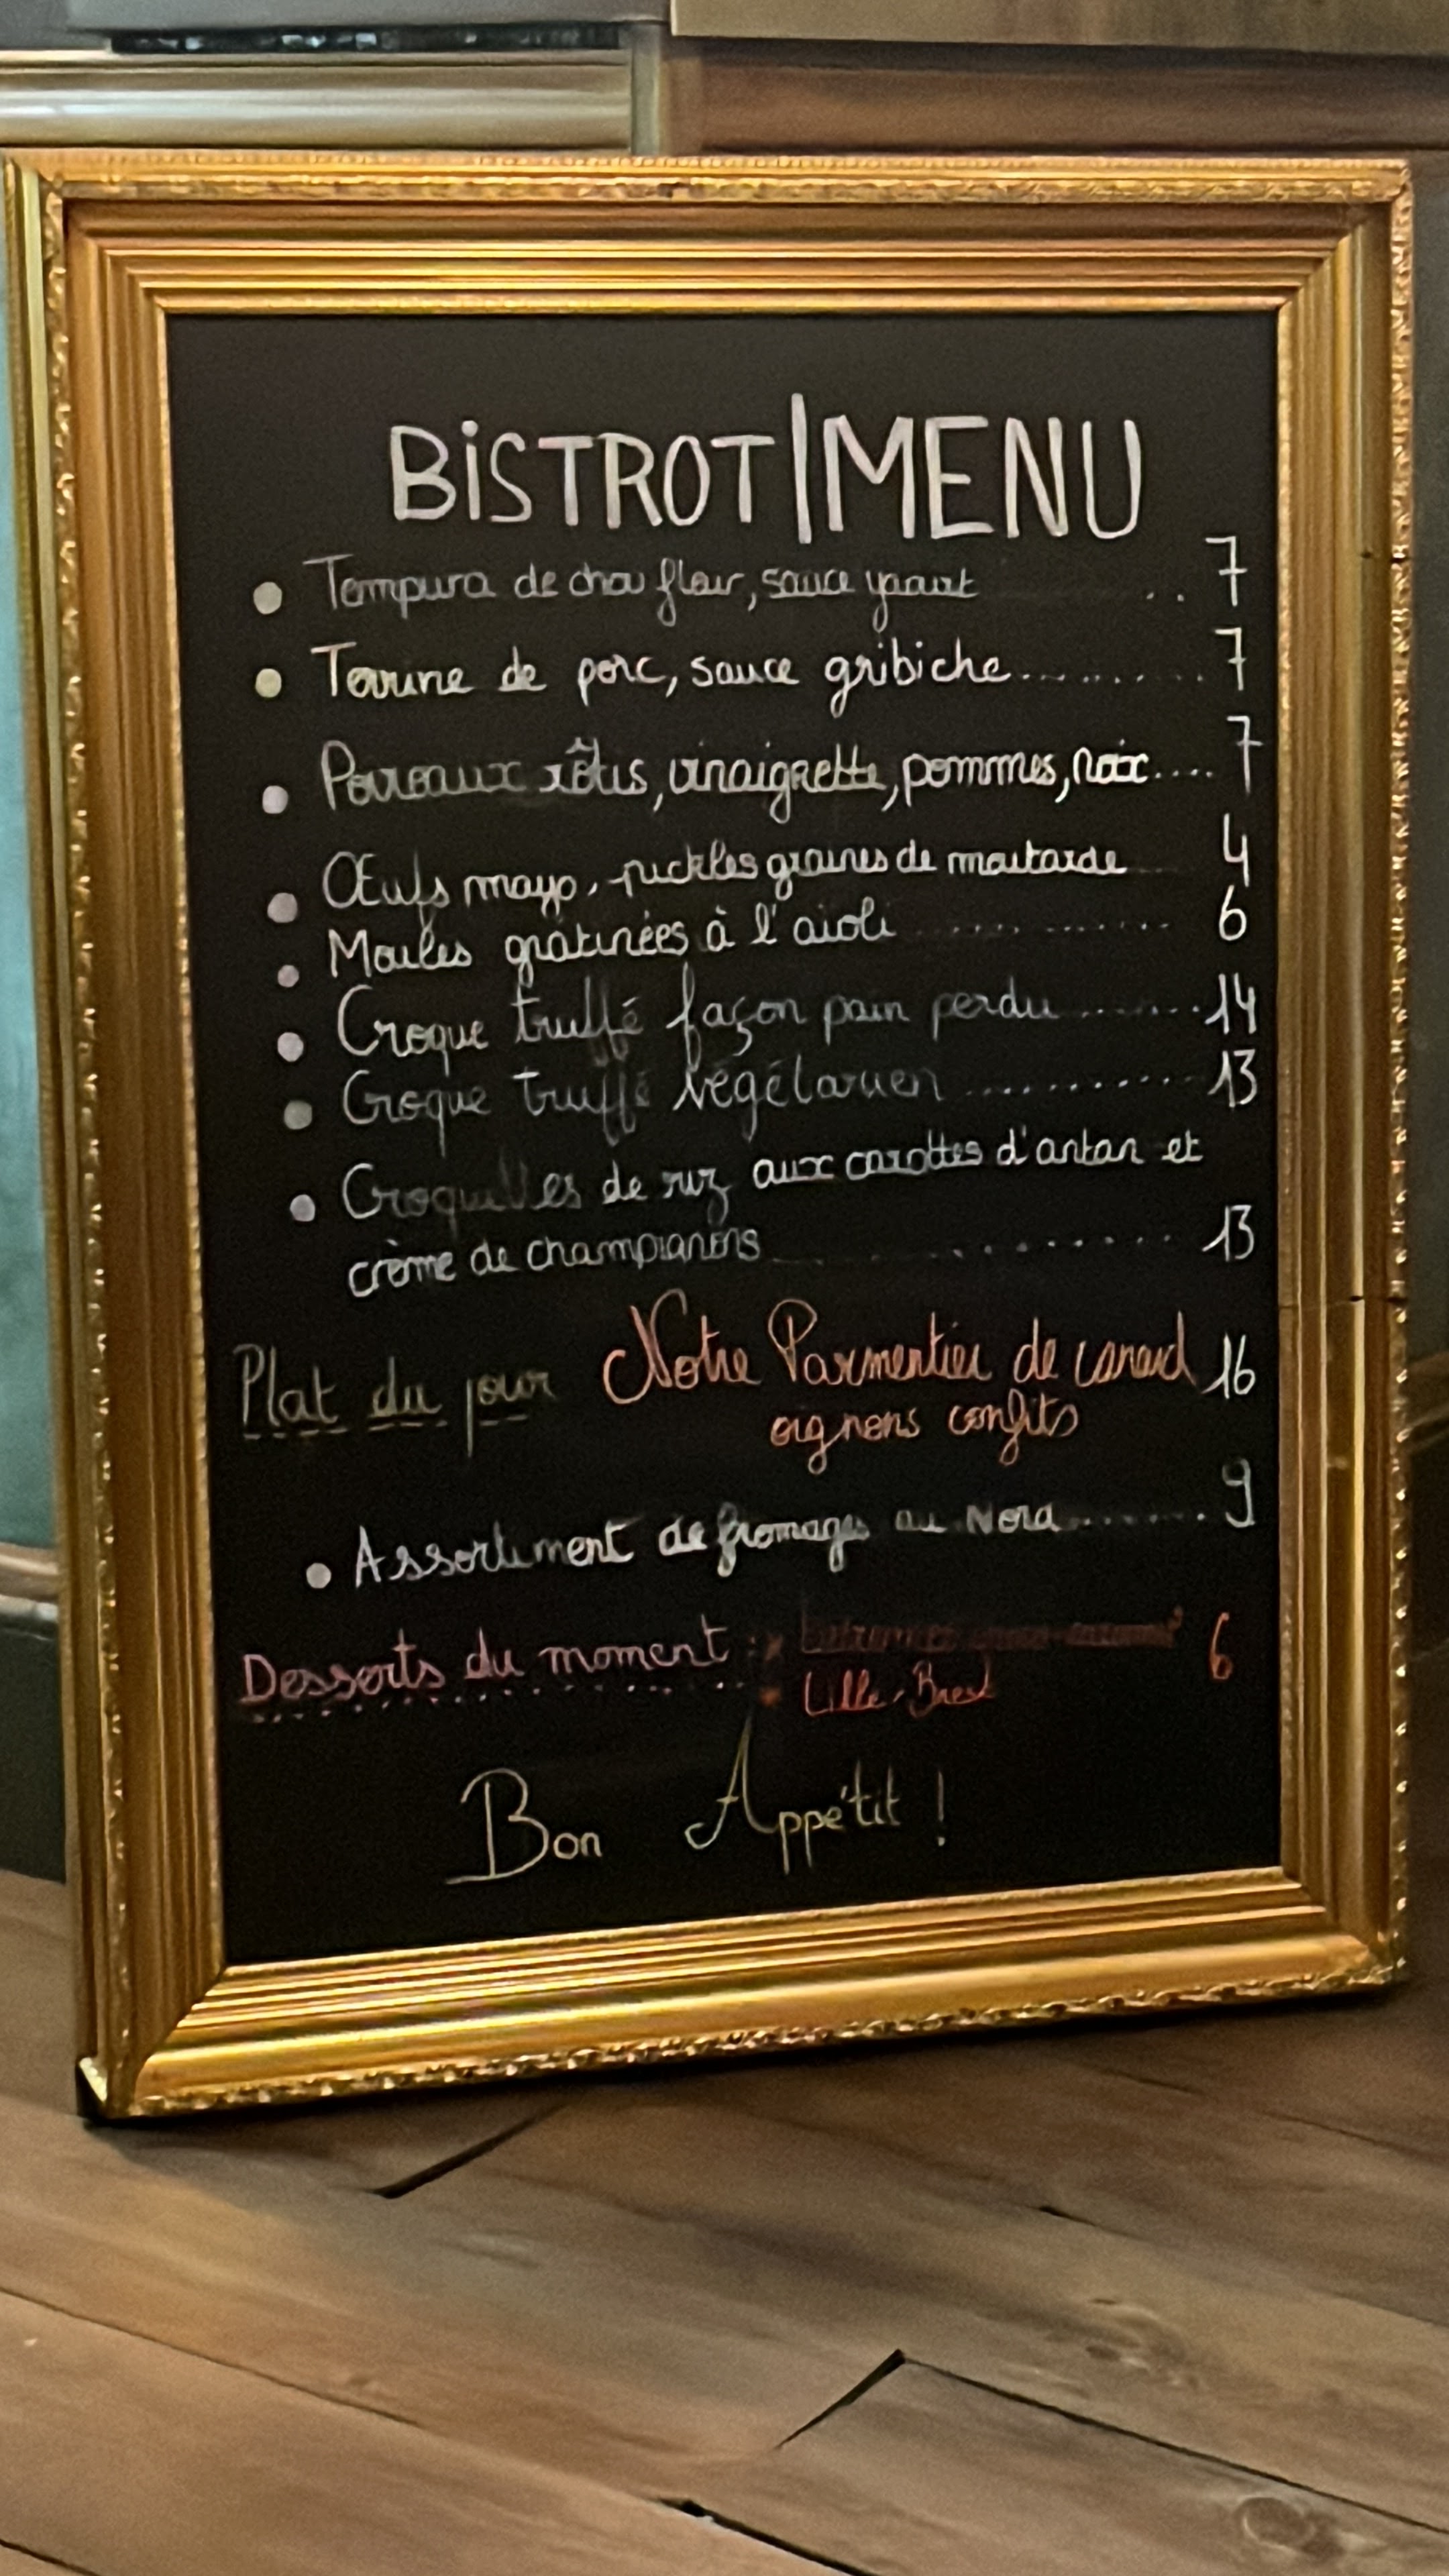 BiSTROT|MENU
• Tempura de chou fleur, sauce yaourt .. 7
• Terrine de porc, sauce gribiche.......... 7
• Poireaux rôtis, vinaigrette, pommes, noix..... 7
• Œufs mayo, pickles graines de moutarde 4
• Moules gratinées à l'aioli ........... 6
• Croque truffé façon pain perdu ........ 14
• Croque truffé végétarien ........... 13
• Croquettes de riz aux carottes d'antan et
crème de champignons .......... 13
Plat du jour Notre Parmentier de canard 16
oignons confits
• Assortiment de fromages du Nord........ 9
Desserts du moment : 6
Lille-Brest
Bon Appétit !